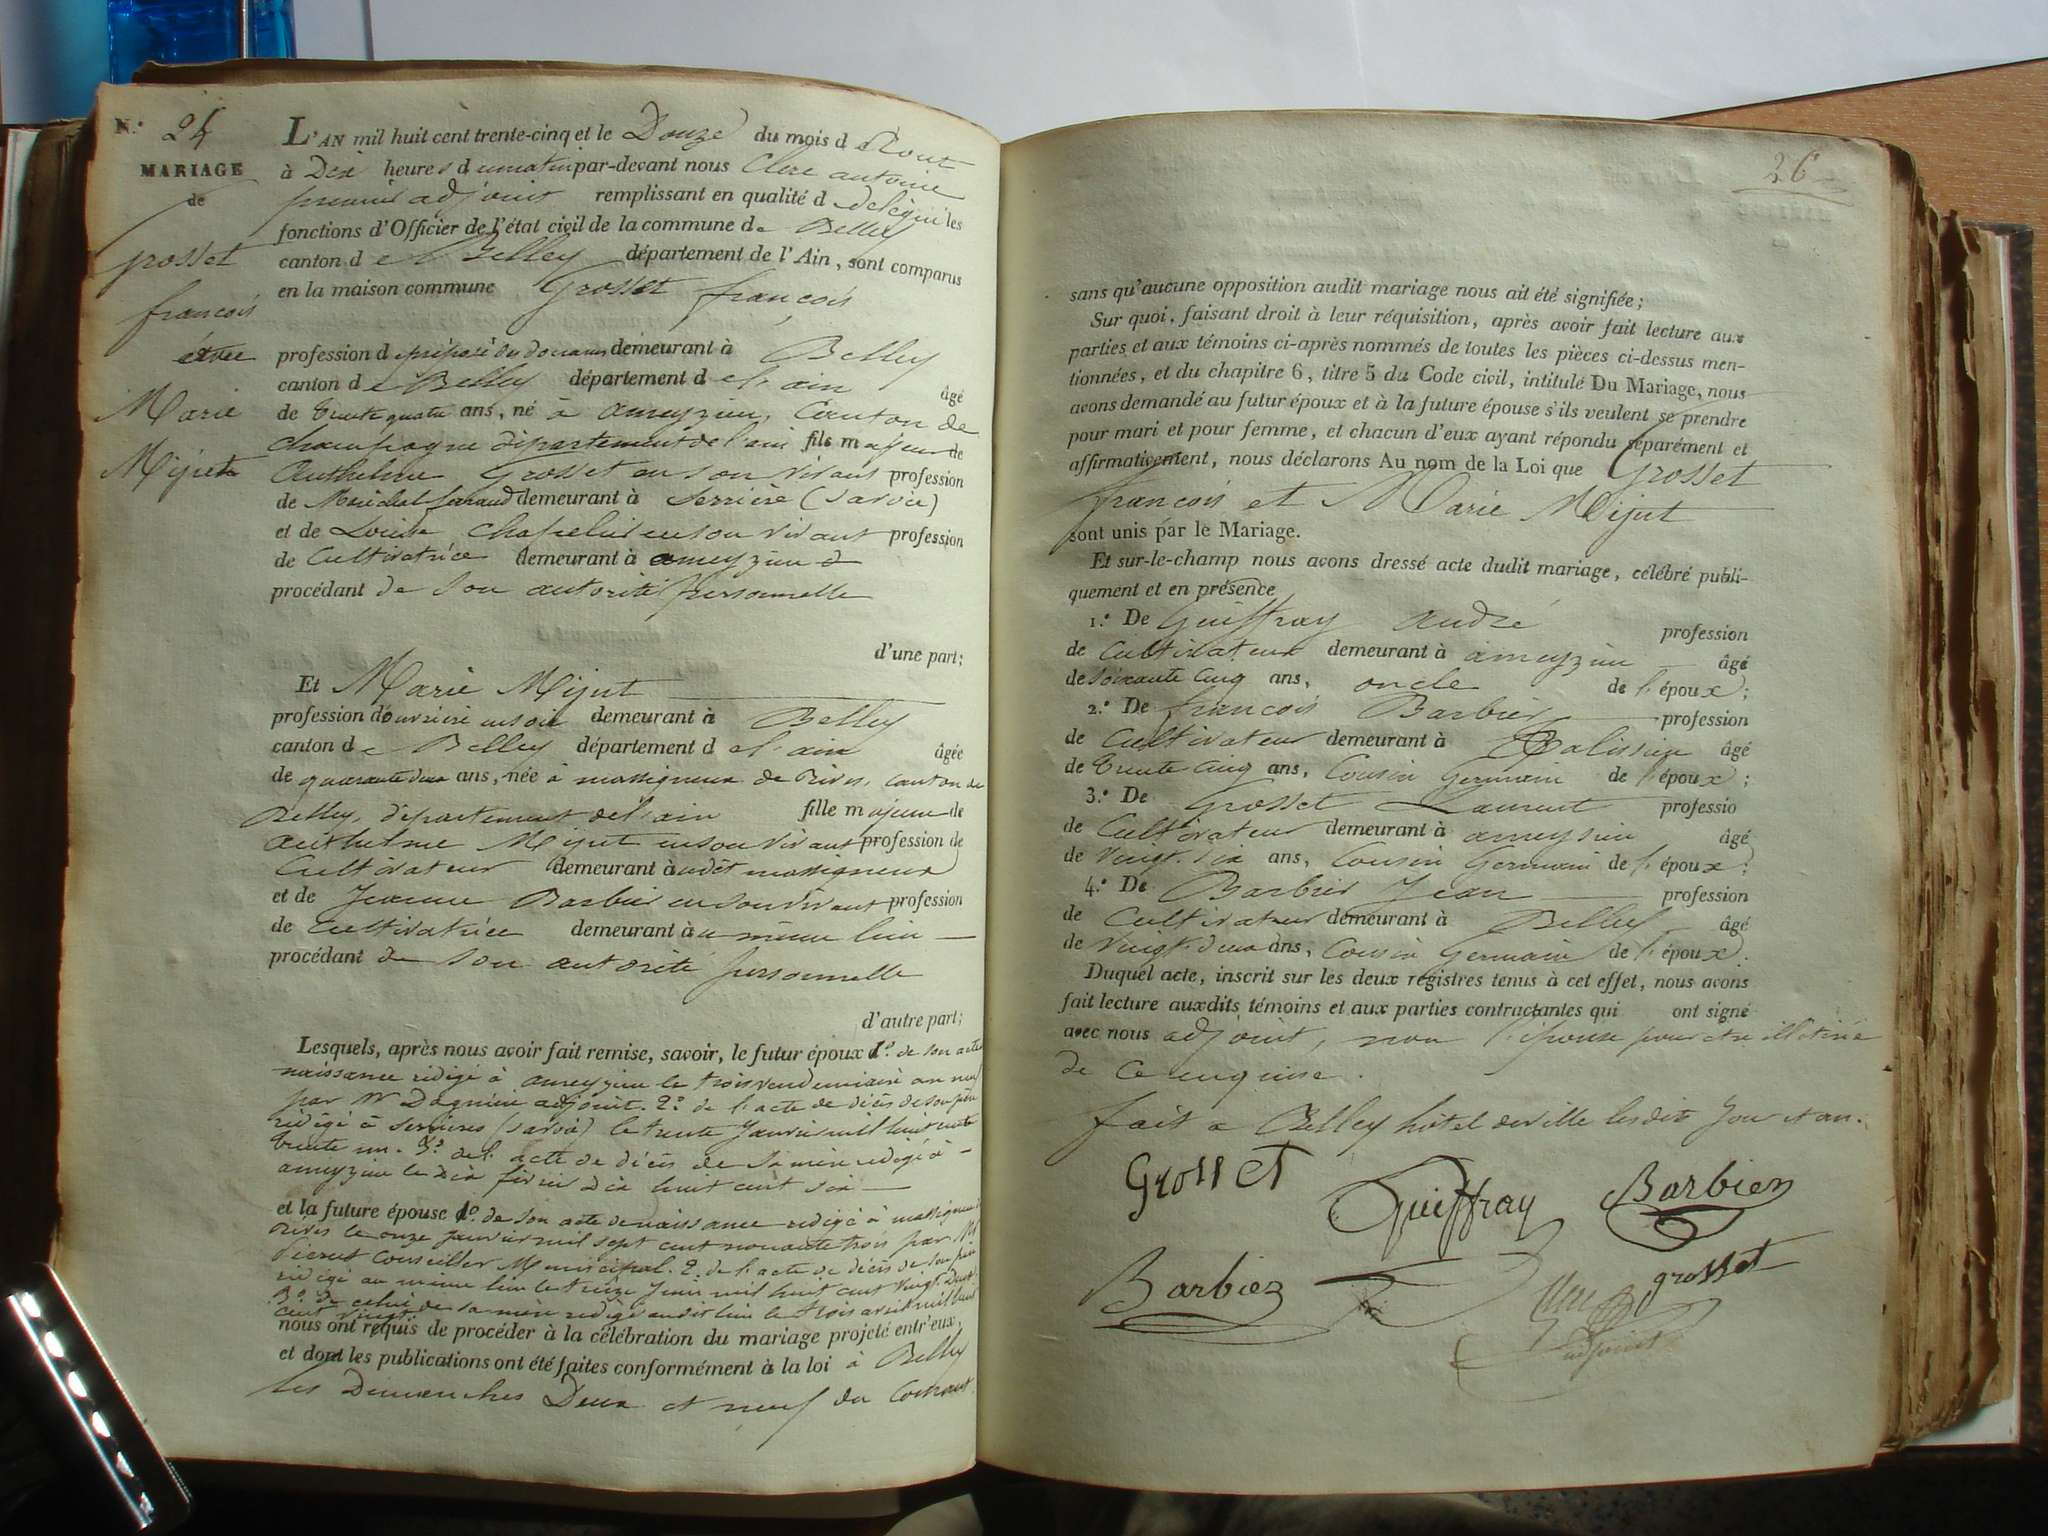 N.º 24
MARIAGE
de
Grosset
françois
et
Marie
Mijut
L'AN mil huit cent trente-cinq et le Douze du mois d'Aout
à Dix heures du matin par-devant nous Clerc antoine
premier adjoint remplissant en qualité de délégué les
fonctions d'Officier de l'état civil de la commune de Belley
canton de Belley département de l'Ain, sont comparus
en la maison commune Grosset françois
profession de préposé du douanes demeurant à Belley
canton de Belley département de l'ain âgé
de trente quatre ans, né à ameyzieu, Canton de
champagne département de l'ain fils majeur de
Anthelme Grosset en son vivant profession
de Maréchal ferrand demeurant à Serrière (savoie)
et de Louise Chapelu en son vivant profession
de Cultivatrice demeurant à ameyzieu
procédant de son autorité personnelle
d'une part;
Et Marie Mijut
profession d'ouvrière en soie demeurant à Belley
canton de Belley département de l'ain âgée
de quarante deux ans, née à massigneux de Rives, canton de
Belley, département de l'ain fille majeure de
Anthelme Mijut en son vivant profession de
Cultivateur demeurant audit massigneux
et de Jeanne Barbier en son vivant profession
de Cultivatrice demeurant au même lieu
procédant de son autorité personnelle
d'autre part;
Lesquels, après nous avoir fait remise, savoir, le futur époux 1º. de son acte
naissance rédigé à ameyzieu le trois vendemiaire an neuf
par Mr Dagnieu adjoint. 2º de l'acte de décès de son père
rédigé à Serrières (savoie) le trente Janvier mil huit cent
trente un. 3º. de l'acte de décès de sa mère rédigé à
ameyzieu le dix février dix huit cent six
et la future épouse 1º. de son acte de naissance rédigé à massigneux
rives le onze janvier mil sept cent nonante trois par M
Conseiller Municipal. 2º. de l'acte de décès de son père
rédigé au même lieu le treize Juin mil huit cent vingt deux
3º. de celui de sa mère rédigé audit lieu le trois avril mil huit
cent vingt
nous ont requis de procéder à la célébration du mariage projeté entr'eux,
et dont les publications ont été faites conformément à la loi à Belley
les Dimanches Deux et neuf du Courant.
26
sans qu'aucune opposition audit mariage nous ait été signifiée;
Sur quoi, faisant droit à leur réquisition, après avoir fait lecture aux
parties et aux témoins ci-après nommés de toutes les pièces ci-dessus men-
tionnées, et du chapitre 6, titre 5 du Code civil, intitulé Du Mariage, nous
avons demandé au futur époux et à la future épouse s'ils veulent se prendre
pour mari et pour femme, et chacun d'eux ayant répondu séparément et
affirmativement, nous déclarons Au nom de la Loi que Grosset
françois et Marie Mijut
sont unis par le Mariage.
Et sur-le-champ nous avons dressé acte dudit mariage, célébré publi-
quement et en présence
1.º De Guiffray André profession
de Cultivateur demeurant à ameyzieu âgé
de soixante cinq ans, oncle de l'époux;
2.º De françois Barbier profession
de Cultivateur demeurant à Talissieu âgé
de trente cinq ans, Cousin Germain de l'époux;
3.º De Grosset Laurent professio
de Cultivateur demeurant à ameysieu âgé
de vingt-six ans, Cousin Germain de l'époux;
4.º De Barbier Jean profession
de Cultivateur demeurant à Belley âgé
de vingt-deux ans, Cousin Germain de l'époux.
Duquel acte, inscrit sur les deux registres tenus à cet effet, nous avons
fait lecture auxdits témoins et aux parties contractantes qui ont signé
avec nous adjoint, non l'épouse pour etre illetirée
de Ce enquise.
fait a Belley hôtel de ville lesdits Jour et an.
Grosset Guiffray Barbier
Barbier grosset
adjoint